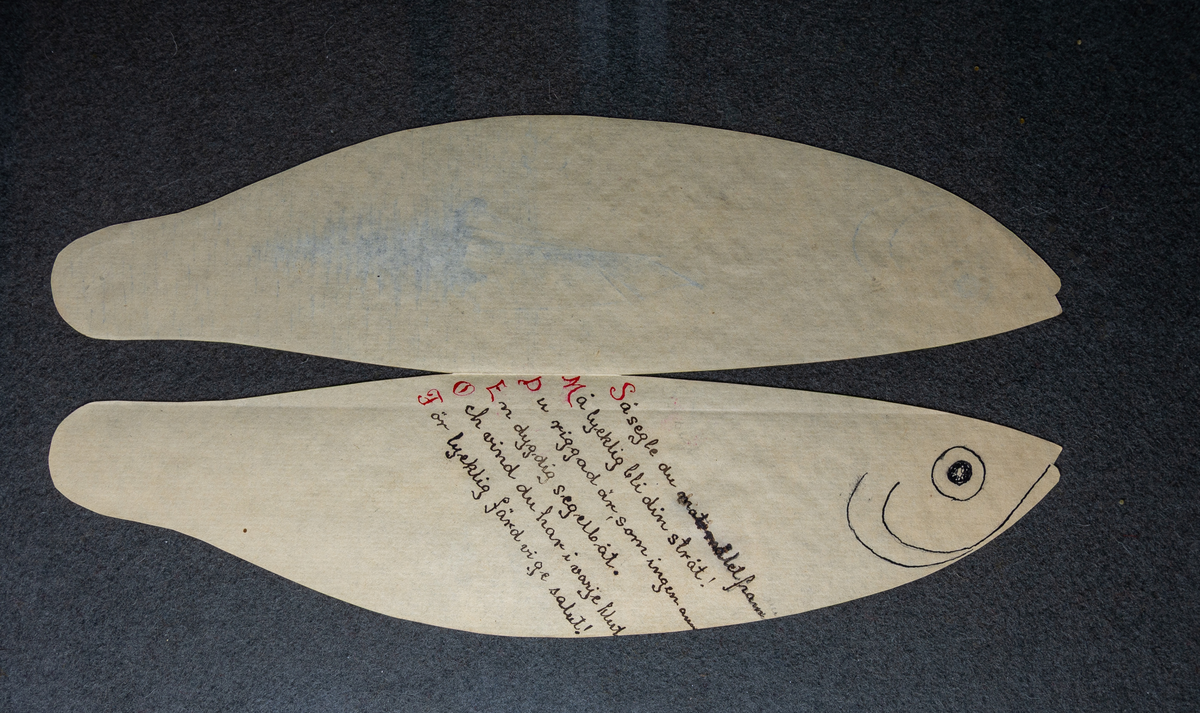 Så segle du mot målet fram
Må lycklig bli din stråt!
Du riggad är, som ingen ann
En dygdig segelbåt.
Och vind du har i varje klut
För lycklig färd vi ge salut!